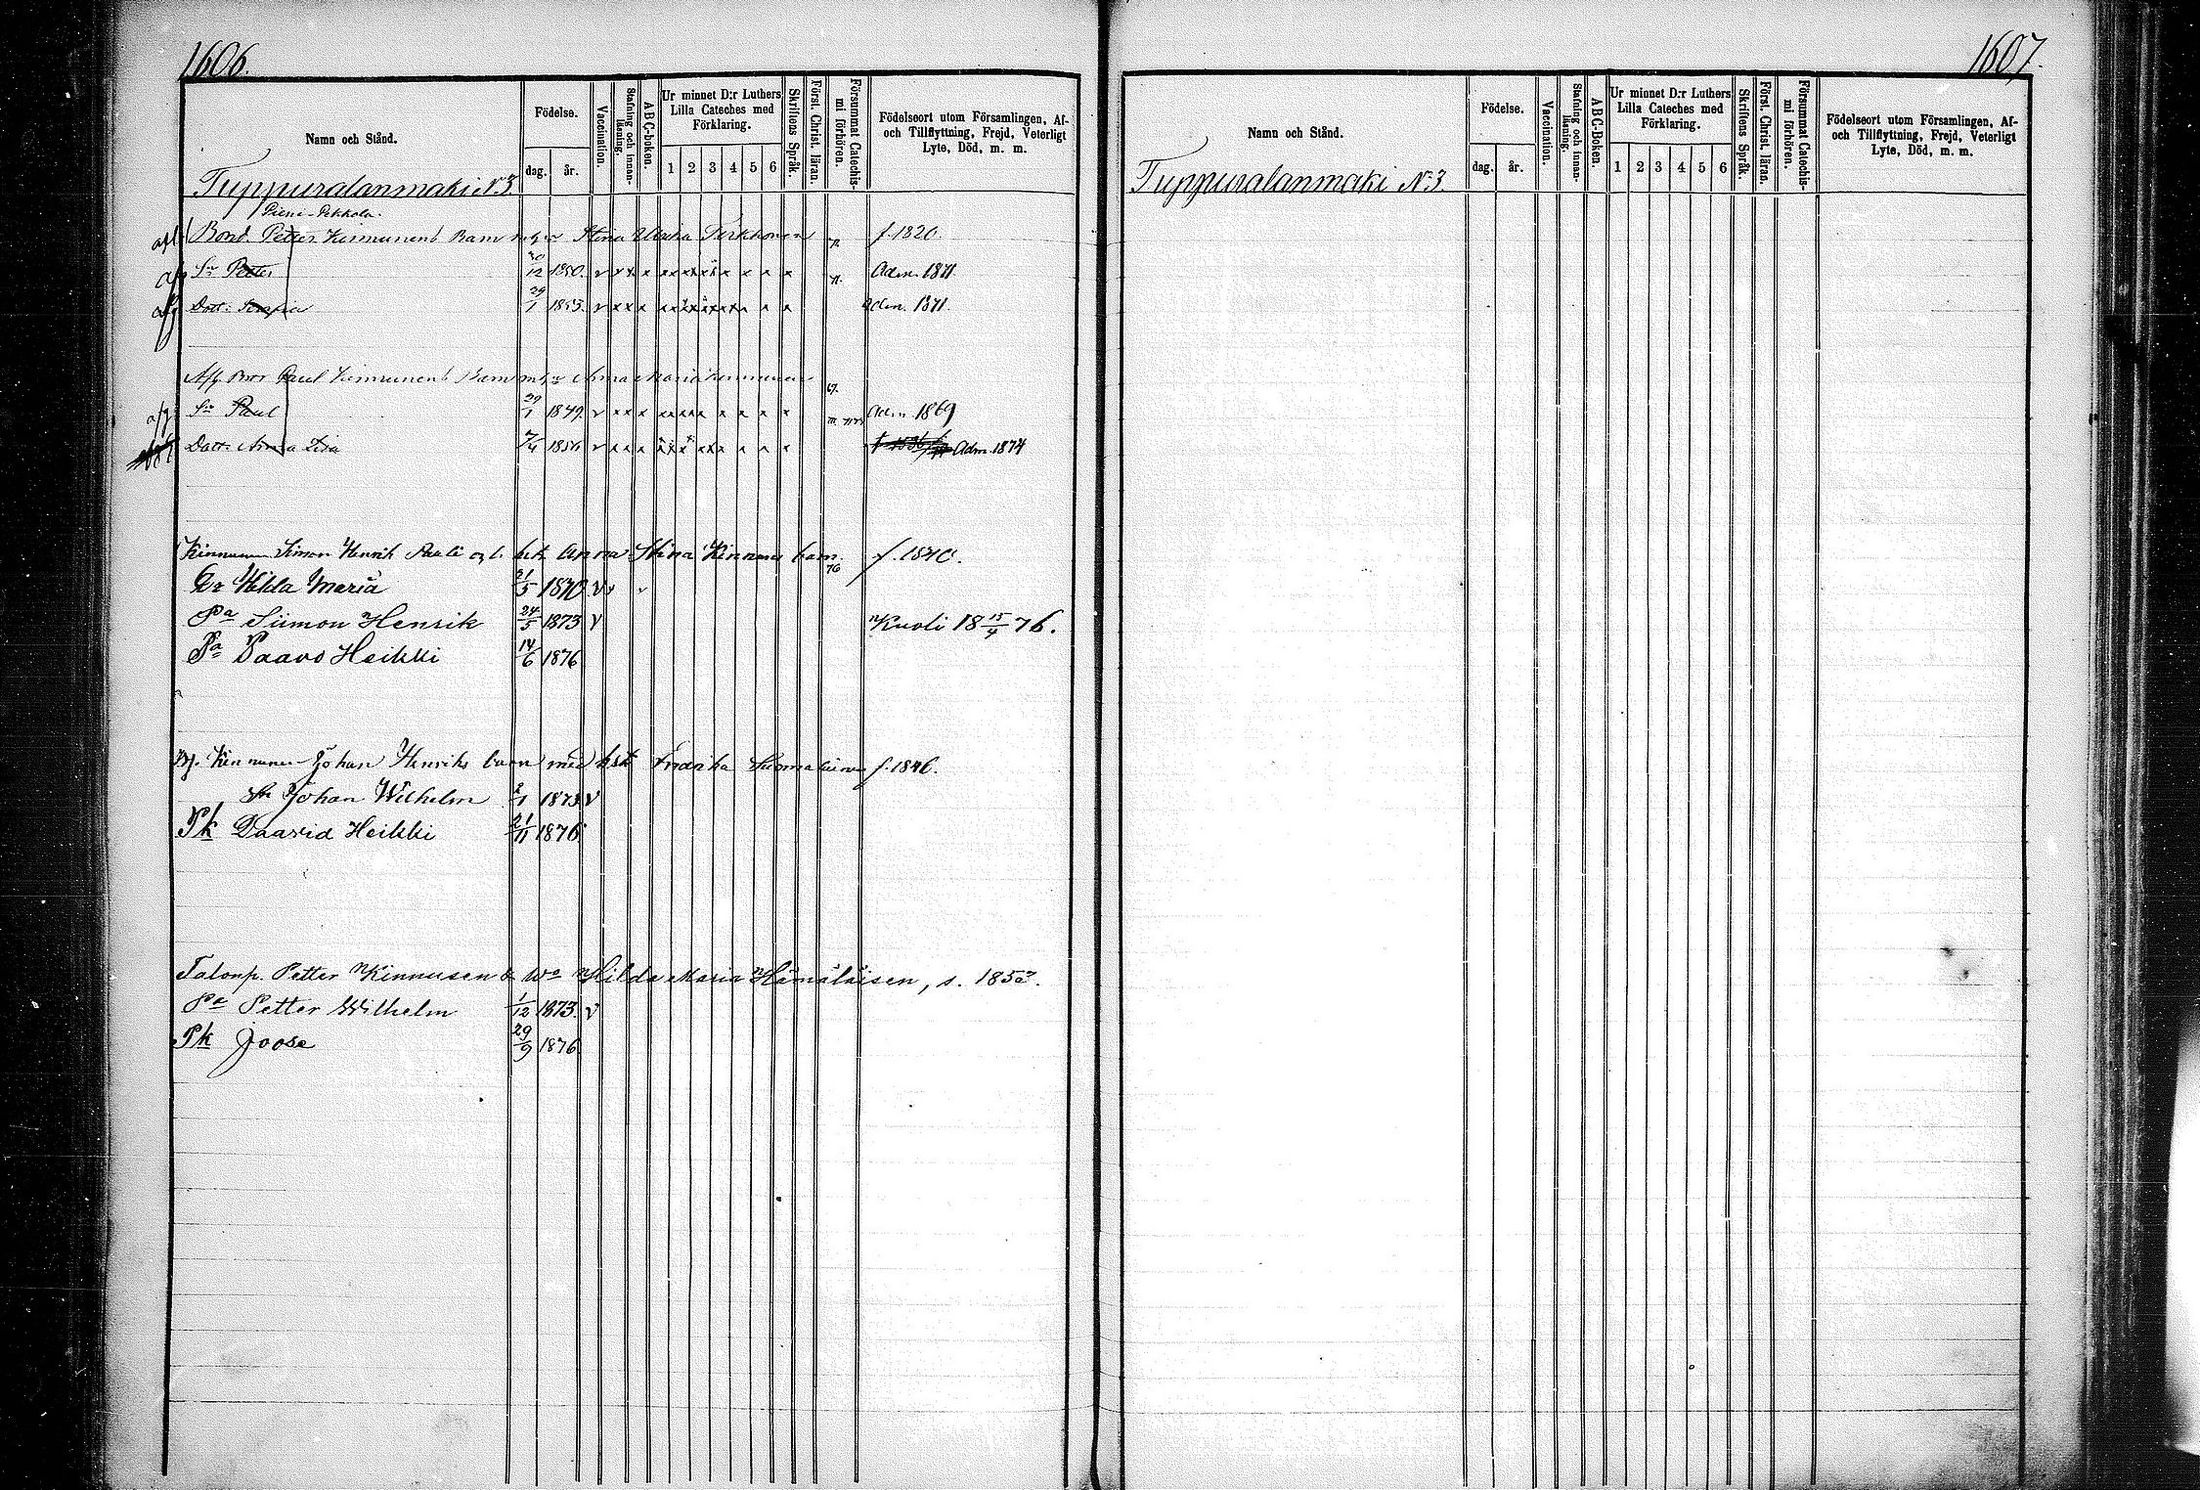 1606.
Namn och Stånd.
Födelse.
dag. år.
Vaccination.
Stafning och innanläsning.
ABC-boken.
Ur minnet D:r Luthers Lilla Cateches med Förklaring.
1 2 3 4 5 6
Skriftens Språk.
Först. Christ. läran.
Försummat Catechismi förhören.
Födelseort utom Församlingen, Af- och Tillflyttning, Frejd, Veterligt Lyte, Död, m. m.
Tuppuralanmäki N:3
Pieni-Pekkola.
Bond. Petter Kinnunens Barn Stina Ulrika f. 1820.
Sn Petter 12 1850. v x x x x x x x x x x x Adm. 1871.
Dott: Sofia 29/1 1853. v x x x x x x x x x x x Adm. 1871.
Afl. Bror Paul Kinnunens Barn Anna Maria Kinnunen 67.
Sn Paul 29/1 1849. v x x x x x x x x x x x Adm. 1869
Dott: Anna Lisa 7/4 1856 v x x x x x x x x x x x Adm. 1874
Kinnunen Simon Henrik Anna Stina Kinnunen barn. 76 f. 1840.
Dr Hilda Maria 21/5 1870 v v
Pa Siimon Henrik 24/5 1873 v Kuoli 18 15/4 76.
Pa Paavo Heikki 14/6 1876
Kinnunen Johan Henriks barn med hst Fredrika Suomalainen f. 1846.
Sn Johan Wilhelm 2/1 1873 v
Pk Daavid Heikki 21/11 1876
Talonp. Petter Kinnusen & Wo Hilda Maria Hämäläisen, s. 1853.
Pa Petter Wilhelm 1/12 1873. v
Pk Joose 29/9 1876
1607.
Namn och Stånd.
Födelse.
dag. år.
Vaccination.
Stafning och innanläsning.
ABC-Boken.
Ur minnet D:r Luthers Lilla Cateches med Förklaring.
1 2 3 4 5 6
Skriftens Språk.
Först. Christ. läran.
Försummat Catechismi förhören.
Födelseort utom Församlingen, Af- och Tillflyttning, Frejd, Veterligt Lyte, Död, m. m.
Tuppuralanmäki N:3.